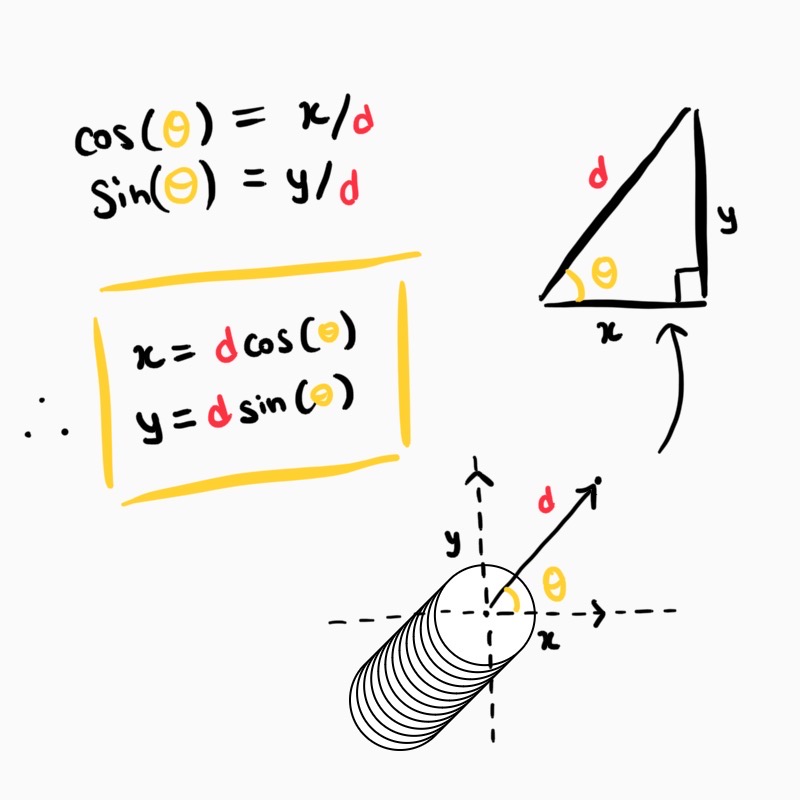 cos(θ) = x/d
sin(θ) = y/d
∴
x = d cos(θ)
y = d sin(θ)
d
y
θ
x
d
y
θ
x